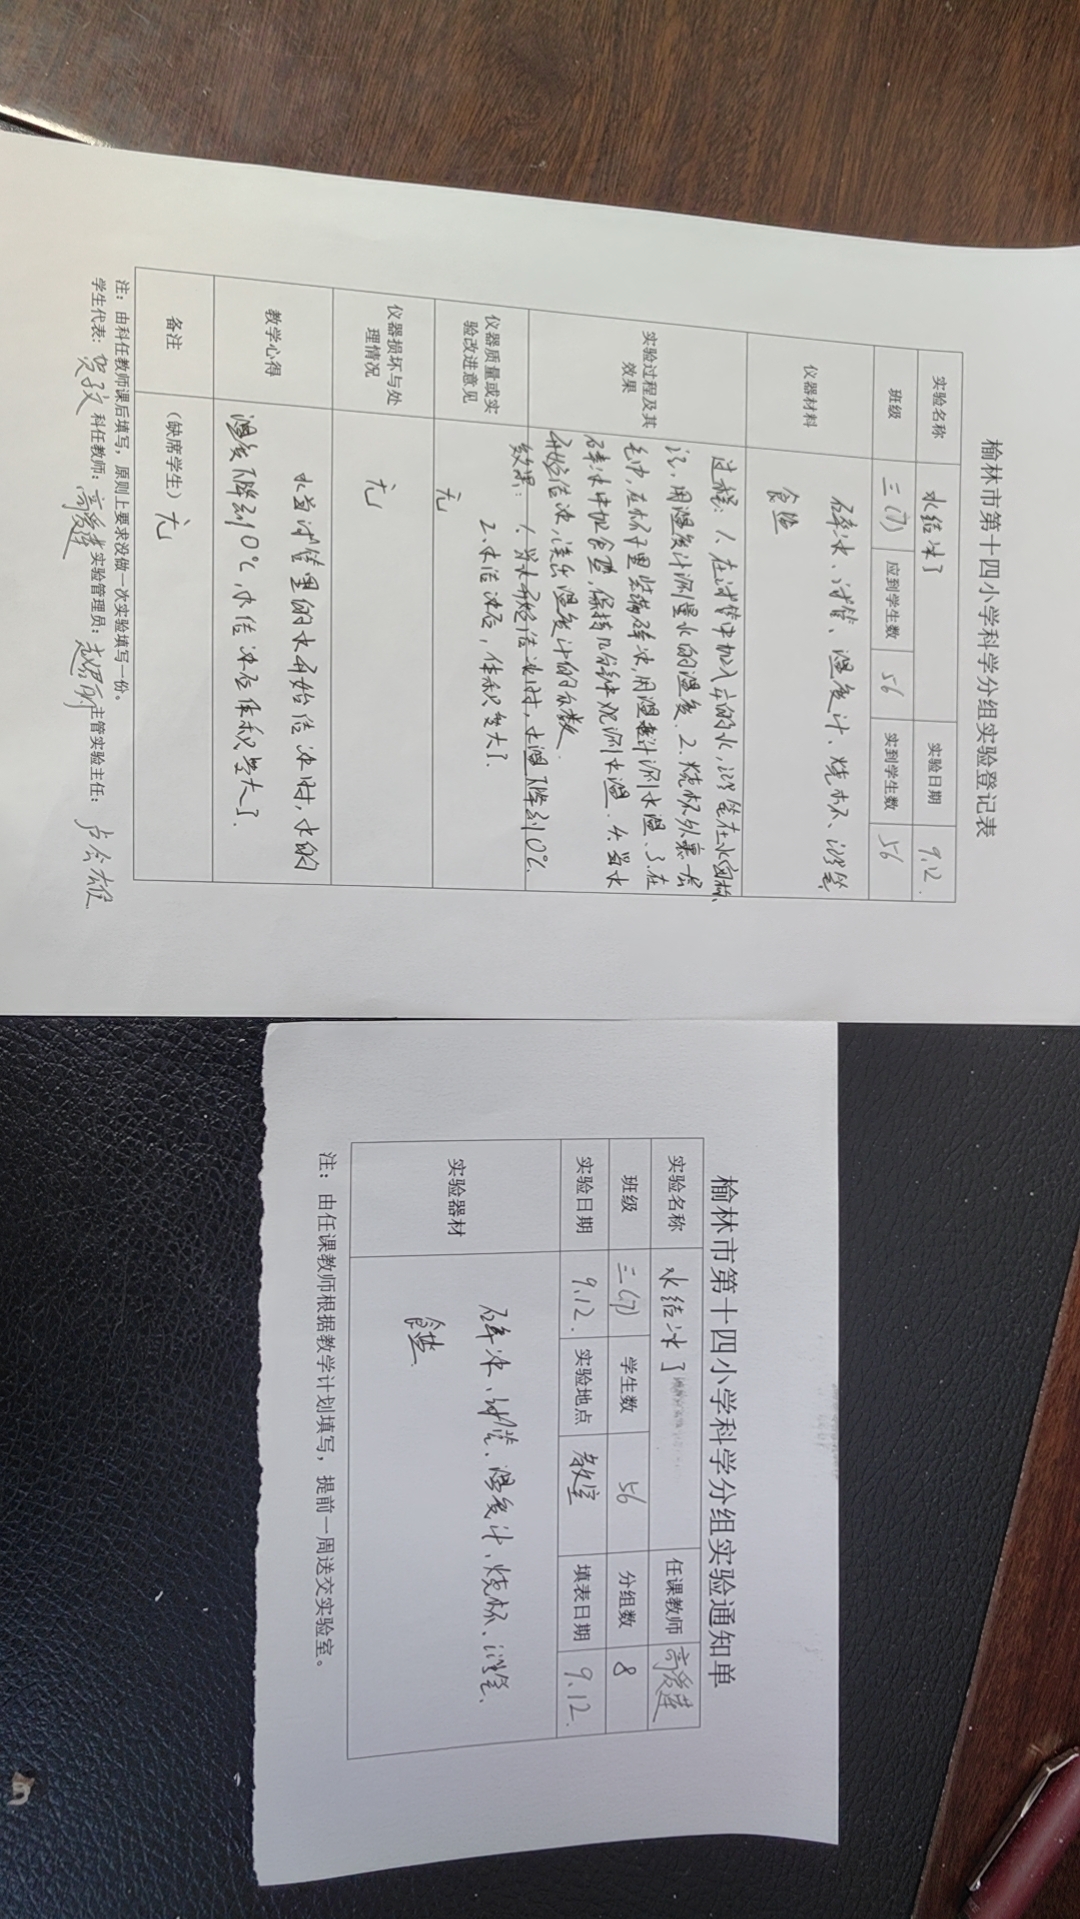 榆林市第十四小学科学分组实验登记表
实验名称 水结冰了 实验日期 9.12.
班级 三(7) 应到学生数 56 实到学生数 56
仪器材料 碎冰、试管、温度计、烧杯、
食盐
实验过程及其效果
过程: 1. 在试管中加入 的水,
用温度计测量水的温度. 2. 烧杯外裹一层
毛巾, 在杯子里装满碎冰, 用温度计测水温. 3. 在
碎冰中加食盐, 保持几分钟观测水温. 4. 当水
开始结冰, 读出温度计的示数.
效果: 1. 当水开始结冰时, 水温下降到0℃.
2. 水结冰后, 体积变大了.
仪器质量或实验改进意见 无
仪器损坏与处理情况 无
教学心得 水当试管里的水开始结冰时, 水的
温度下降到0℃, 水结冰后体积变大了.
备注 (缺席学生) 无
注: 由科任教师课后填写, 原则上要求没做一次实验填写一份。
学生代表: 科任教师: 高爱莲 实验管理员: 主管实验主任:
榆林市第十四小学科学分组实验通知单
实验名称 水结冰了 任课教师 高爱莲
班级 三(7) 学生数 56 分组数 8
实验日期 9.12. 实验地点 填表日期 9.12.
实验器材 碎冰、试管、温度计、烧杯、
食盐
注: 由任课教师根据教学计划填写, 提前一周送交实验室。